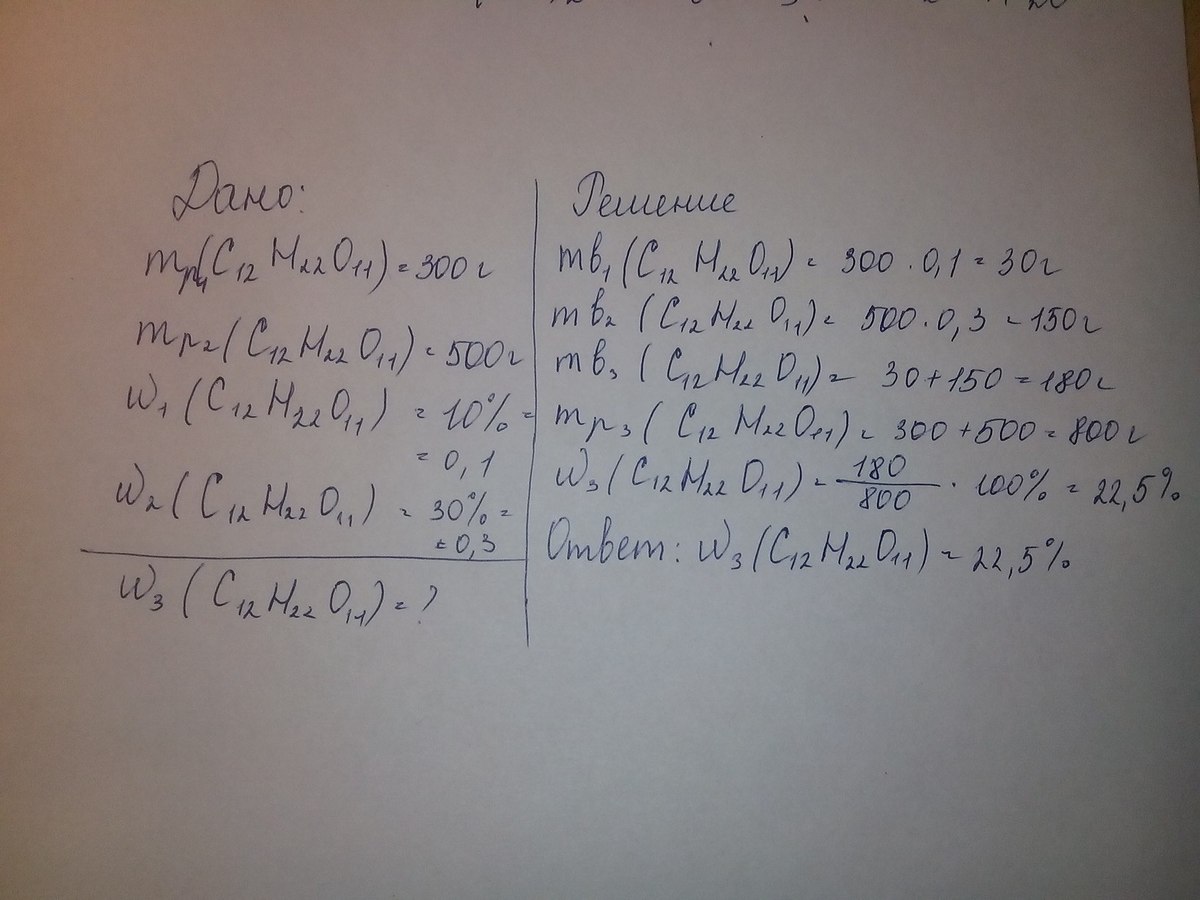 Дано:
mр₁(C₁₂H₂₂O₁₁) = 300г
mр₂(C₁₂H₂₂O₁₁) = 500г
W₁(C₁₂H₂₂O₁₁) = 10% =
= 0,1
W₂(C₁₂H₂₂O₁₁) = 30% =
= 0,3
W₃(C₁₂H₂₂O₁₁) = ?
Решение
mв₁(C₁₂H₂₂O₁₁) = 300 · 0,1 = 30г
mв₂(C₁₂H₂₂O₁₁) = 500 · 0,3 = 150г
mв₃(C₁₂H₂₂O₁₁) = 30+150 = 180г
mр₃(C₁₂H₂₂O₁₁) = 300+500 = 800г
W₃(C₁₂H₂₂O₁₁) = 180/800 · 100% = 22,5%
Ответ: W₃(C₁₂H₂₂O₁₁) = 22,5%